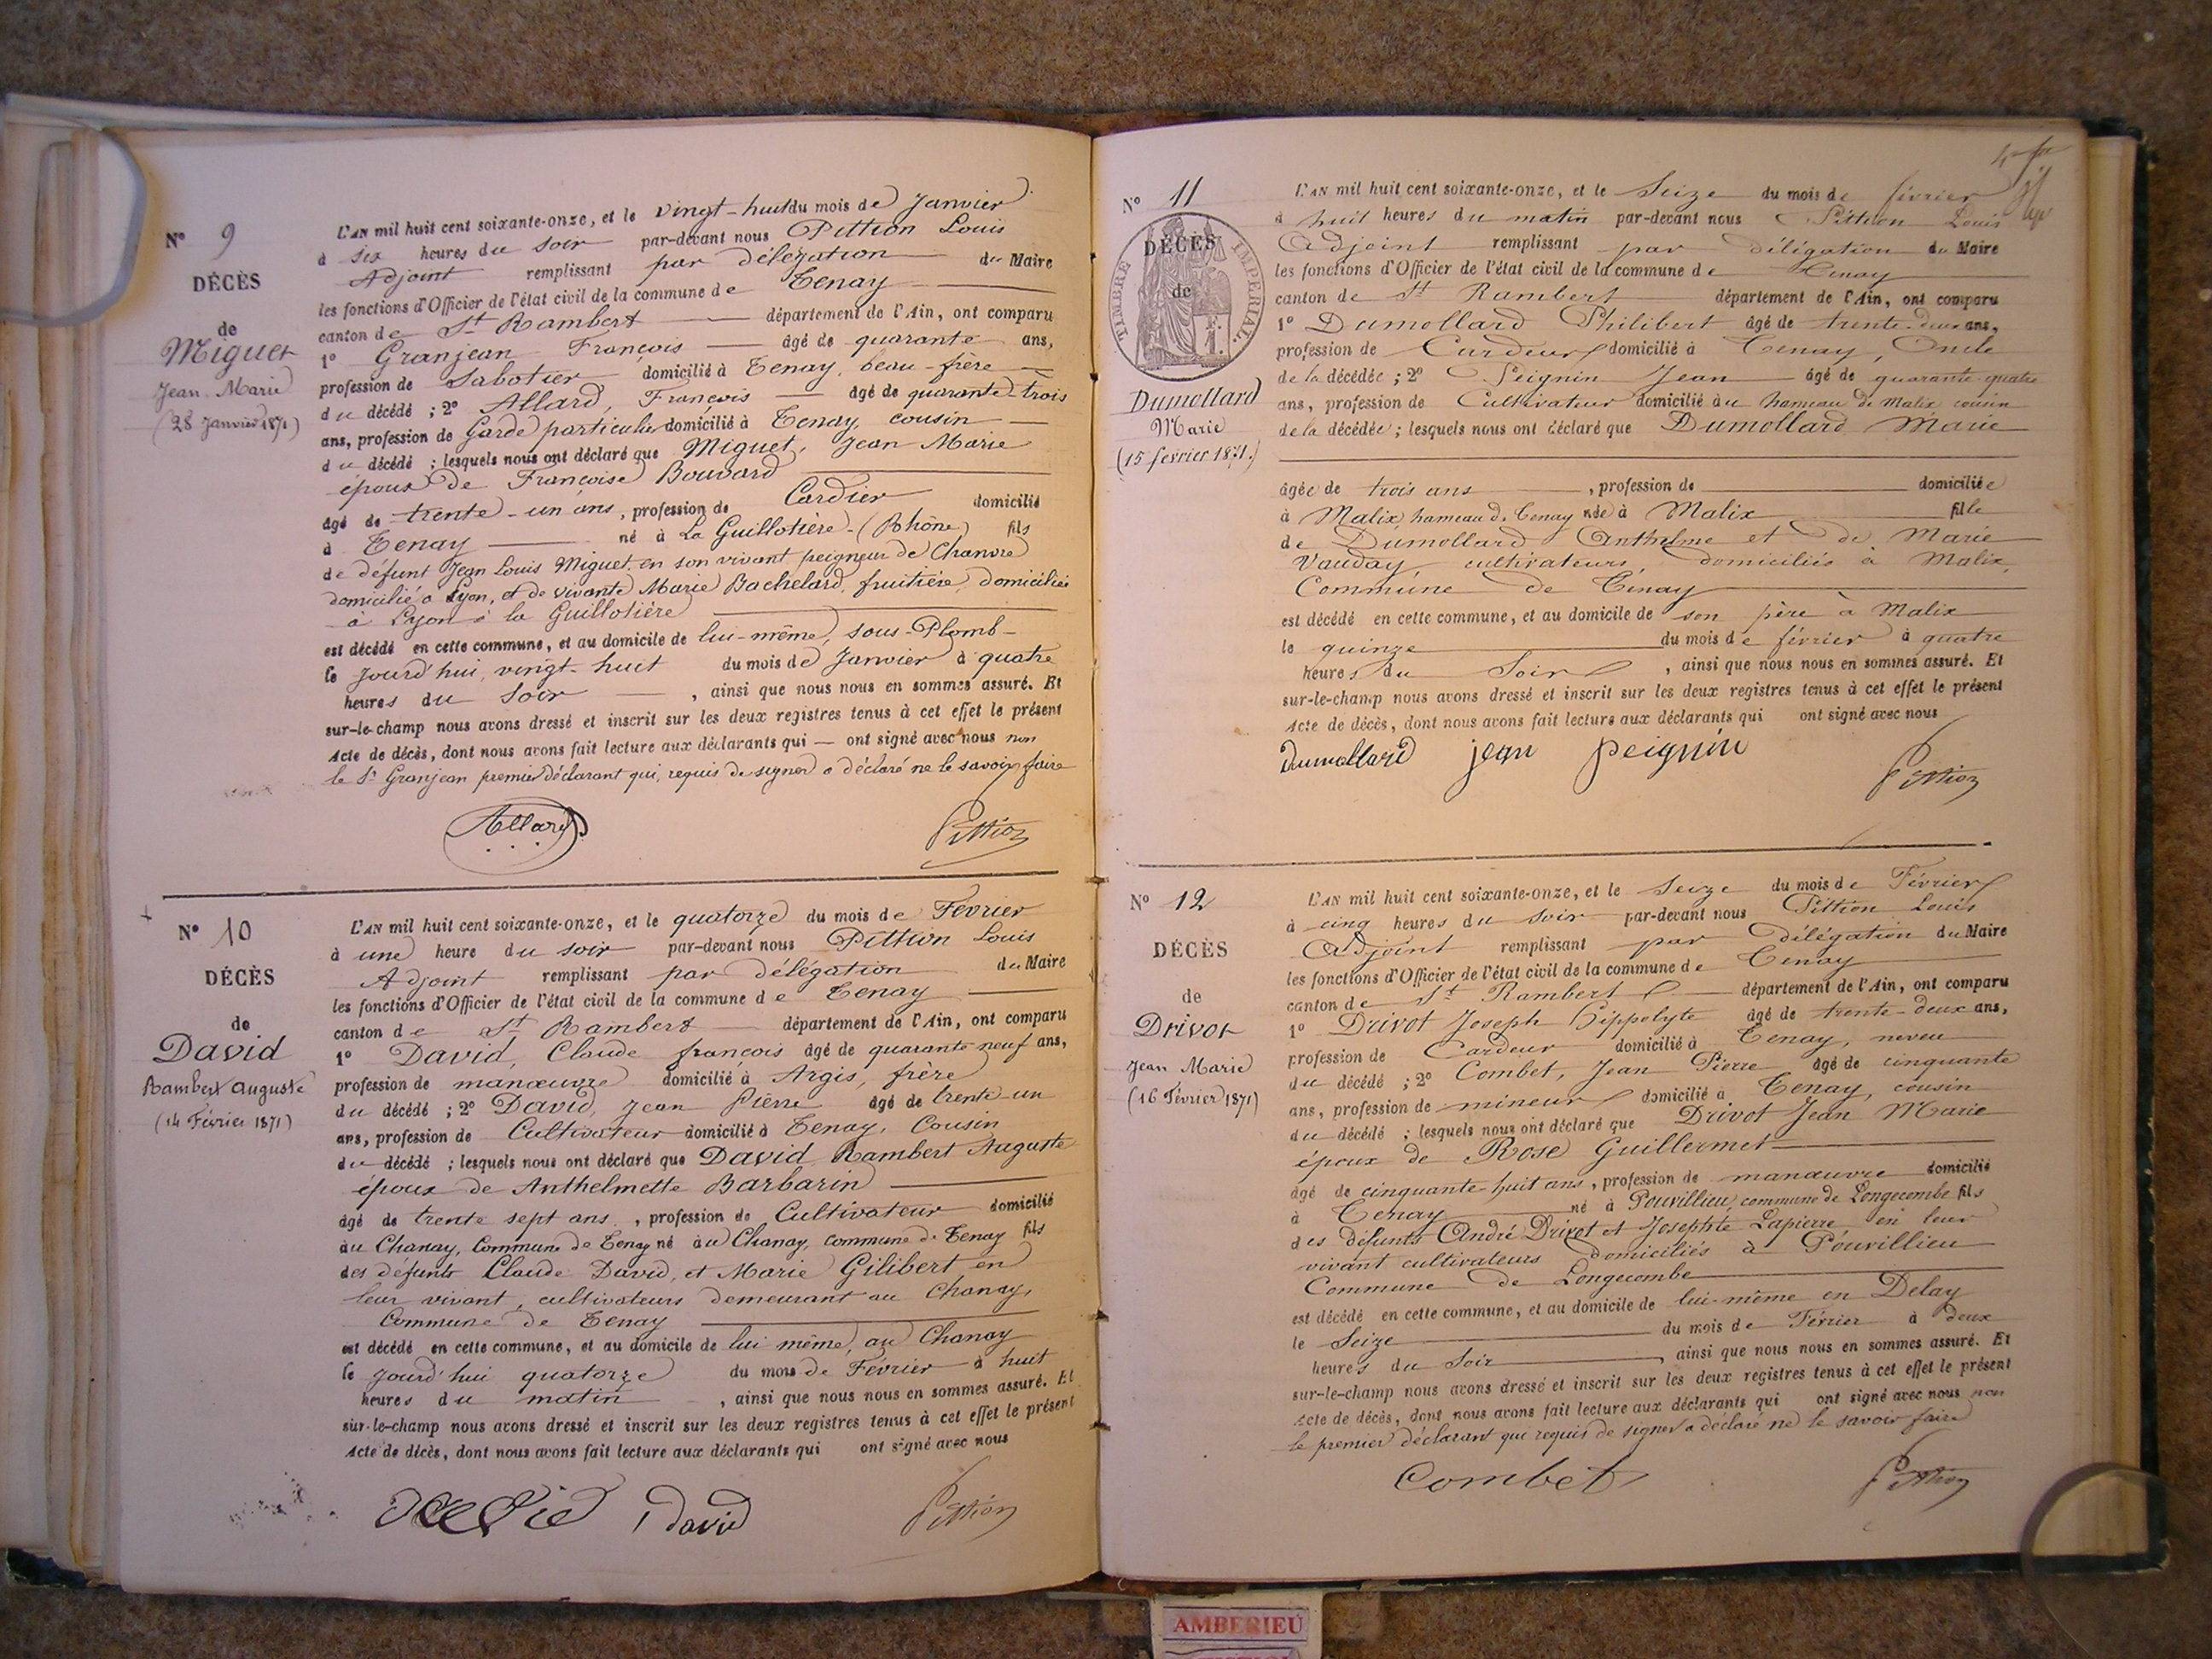 N° 9
DÉCÈS
de
Miguet
Jean Marie
(28 Janvier 1871)
L'AN mil huit cent soixante-onze, et le vingt-huit du mois de Janvier
à six heures du soir par-devant nous Pittion Louis
Adjoint remplissant par délégation du Maire
les fonctions d'Officier de l'état civil de la commune de Tenay
canton de St Rambert département de l'Ain, ont comparu
1° Granjean François âgé de quarante ans,
profession de Sabotier domicilié à Tenay, beau-frère
du décédé ; 2° Allard, François âgé de quarante-trois
ans, profession de Garde particulier domicilié à Tenay, cousin
du décédé ; lesquels nous ont déclaré que Miguet, Jean Marie
époux de Françoise Bouvard
âgé de trente-un ans, profession de Cardier domicilié
à Tenay né à La Guillotière (Rhône) fils
de défunt Jean Louis Miguet, en son vivant peigneur de Chanvre
domicilié à Lyon, et de vivante Marie Bachelard, fruitière, domiciliée
à Lyon à la Guillotière
est décédé en cette commune, et au domicile de lui-même, sous-Plomb-
le jourd'hui, vingt-huit du mois de Janvier à quatre
heures du soir , ainsi que nous nous en sommes assuré. Et
sur-le-champ nous avons dressé et inscrit sur les deux registres tenus à cet effet le présent
Acte de décès, dont nous avons fait lecture aux déclarants qui — ont signé avec nous non
le Sr Granjean premier déclarant qui, requis de signer a déclaré ne le savoir faire
Allard Pittion
N° 10
DÉCÈS
de
David
Rambert Auguste
(14 Février 1871)
L'AN mil huit cent soixante-onze, et le quatorze du mois de Février
à une heure du soir par-devant nous Pittion Louis
Adjoint remplissant par délégation du Maire
les fonctions d'Officier de l'état civil de la commune de Tenay
canton de St Rambert département de l'Ain, ont comparu
1° David, Claude françois âgé de quarante neuf ans,
profession de manœuvre domicilié à Argis, frère
du décédé ; 2° David, Jean Pierre âgé de trente-un
ans, profession de Cultivateur domicilié à Tenay, Cousin
du décédé ; lesquels nous ont déclaré que David Rambert Auguste
époux de Anthelmette Barbarin
âgé de trente sept ans , profession de Cultivateur domicilié
au Chanay, Commune de Tenay né au Chanay, commune de Tenay fils
des défunts Claude David, et Marie Gilibert en
leur vivant, cultivateurs demeurant au Chanay,
Commune de Tenay
est décédé en cette commune, et au domicile de lui même, au Chanay
le jourd'hui quatorze du mois de Février à huit
heures du matin , ainsi que nous nous en sommes assuré. Et
sur-le-champ nous avons dressé et inscrit sur les deux registres tenus à cet effet le présent
Acte de décès, dont nous avons fait lecture aux déclarants qui ont signé avec nous
David David Pittion
N° 11
DÉCÈS
de
TIMBRE IMPÉRIAL
Dumollard
Marie
(15 février 1871.)
L'AN mil huit cent soixante-onze, et le Seize du mois de février
à huit heures du matin par-devant nous Pittion Louis
Adjoint remplissant par délégation du Maire
les fonctions d'Officier de l'état civil de la commune de Tenay
canton de St Rambert département de l'Ain, ont comparu
1° Dumollard Philibert âgé de trente-deux ans,
profession de Cardeur domicilié à Tenay, Oncle
de la décédée ; 2° Peignin Jean âgé de quarante-quatre
ans, profession de Cultivateur domicilié au hameau de Malix cousin
de la décédée ; lesquels nous ont déclaré que Dumollard Marie
âgée de trois ans , profession de domiciliée
à Malix, hameau de Tenay née à Malix fille
de Dumollard Anthelme et de Marie
Vauday, cultivateurs, domiciliés à Malix,
Commune de Tenay
est décédé en cette commune, et au domicile de son père à Malix
le quinze du mois de février à quatre
heures du Soir , ainsi que nous nous en sommes assuré. Et
sur-le-champ nous avons dressé et inscrit sur les deux registres tenus à cet effet le présent
Acte de décès, dont nous avons fait lecture aux déclarants qui ont signé avec nous
dumollard jean peignin Pittion
N° 12
DÉCÈS
de
Drivot
Jean Marie
(16 Février 1871)
L'AN mil huit cent soixante-onze, et le Seize du mois de Février
à cinq heures du soir par-devant nous Pittion Louis
Adjoint remplissant par délégation du Maire
les fonctions d'Officier de l'état civil de la commune de Tenay
canton de St Rambert département de l'Ain, ont comparu
1° Drivot Joseph Hippolyte âgé de trente-deux ans,
profession de Cardeur domicilié à Tenay, neveu
du décédé ; 2° Combet, Jean Pierre âgé de cinquante
ans, profession de mineur domicilié à Tenay, cousin
du décédé ; lesquels nous ont déclaré que Drivot Jean Marie
époux de Rose Guillermet
âgé de cinquante-huit ans, profession de manœuvre domicilié
à Tenay né à Pouvillieu, commune de Longecombe fils
des défunts André Drivot et Josephte Lapierre en leur
vivant cultivateurs domiciliés à Pouvillieu
Commune de Longecombe
est décédé en cette commune, et au domicile de lui-même en Delay
le Seize du mois de Février à deux
heures du Soir , ainsi que nous nous en sommes assuré. Et
sur-le-champ nous avons dressé et inscrit sur les deux registres tenus à cet effet le présent
Acte de décès, dont nous avons fait lecture aux déclarants qui ont signé avec nous non
le premier déclarant qui requis de signer a déclaré ne le savoir faire
Combet Pittion
AMBERIEU